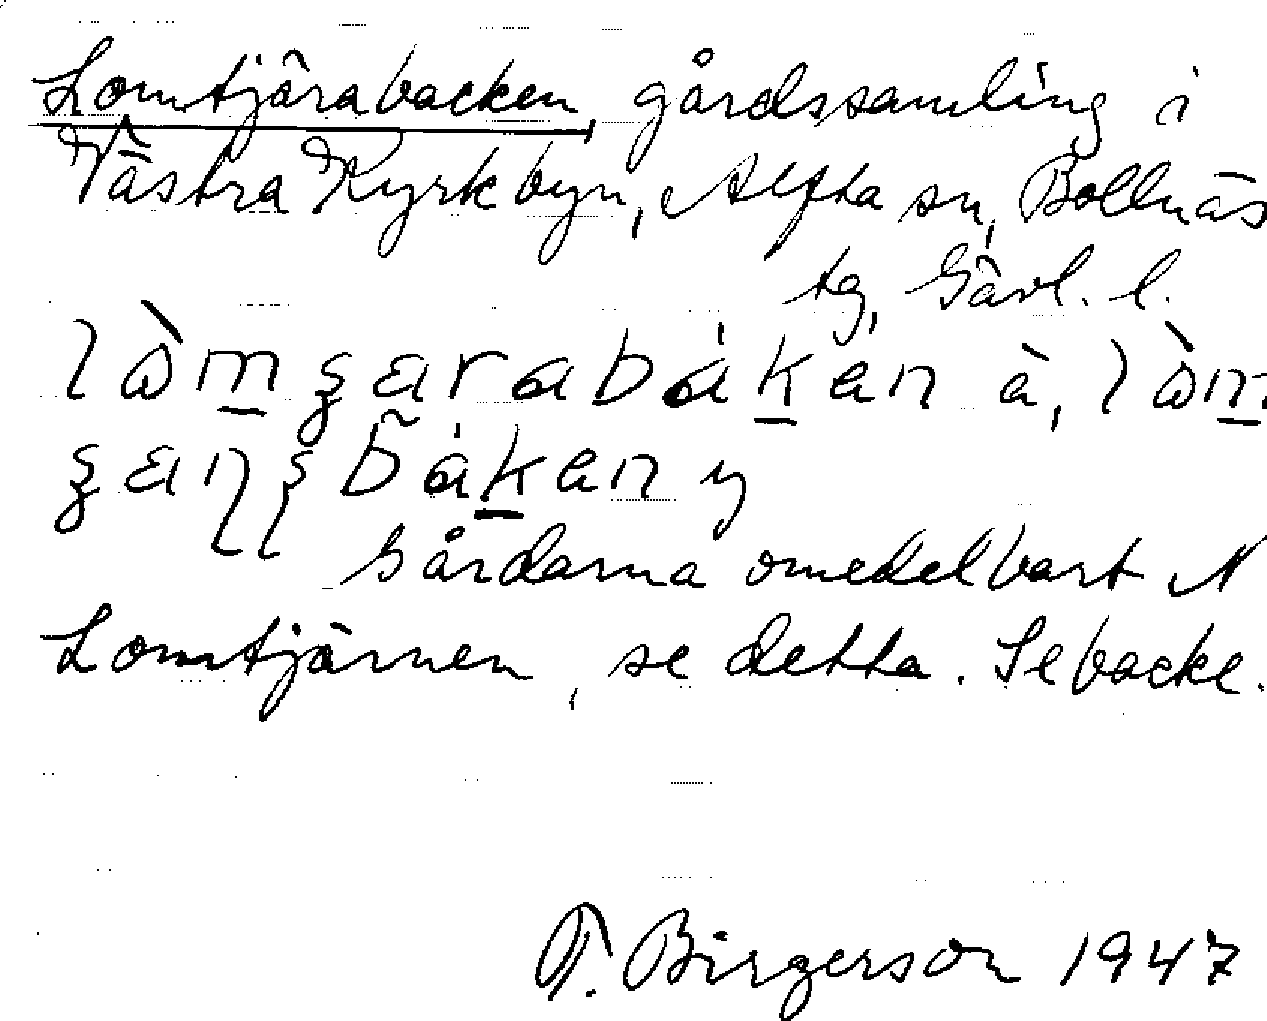 Lomtjärabacken gårdssamling i
Västra Kyrkbyn, Alfta sn, Bollnäs
tg, Gävl. l.
à,
y
Gårdarna omedelbart N
Lomtjärnen, se detta. Se backe.
T. Birgerson 1947